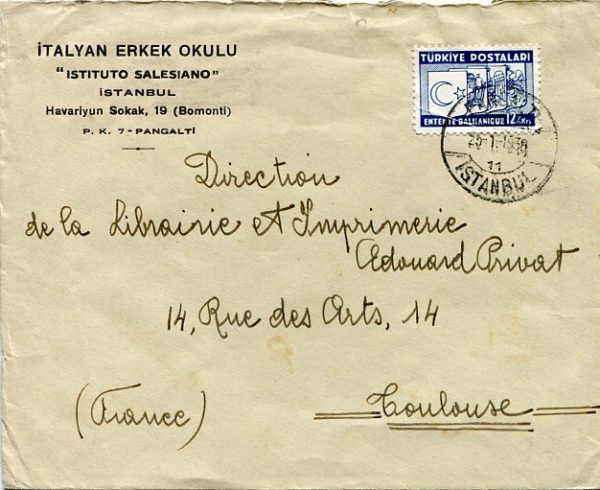 İTALYAN ERKEK OKULU
"ISTITUTO SALESIANO"
İSTANBUL
Havariyun Sokak, 19 (Bomonti)
P. K. 7 - PANGALTI
TÜRKİYE POSTALARI
ENTENTE BALKANIQUE 12½ Krş
İSTANBUL
Direction
de la Librairie et Imprimerie
Edouard Privat
14, Rue des Arts, 14
(France)
Toulouse